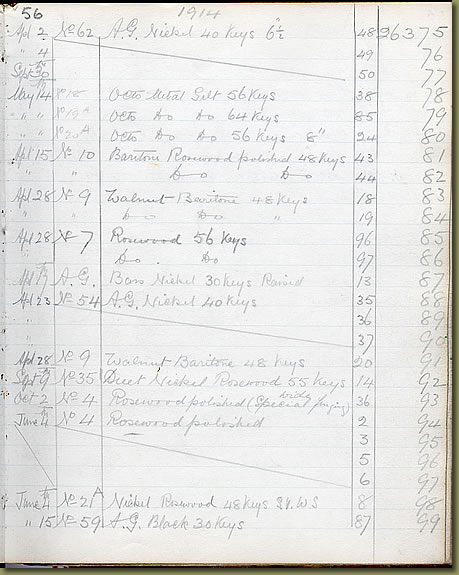 56 1914
Apl 2 No 62 A.G. Nickel 40 Keys 6½" 48 26375
" 4 49 76
Sept 30 50 77
May 14 No 18 Octo Metal Gilt 56 Keys 38 78
" " No 19A Octo Do Do 64 Keys 85 79
" " No 20A Octo Do Do 56 Keys 8" 24 80
Apl 15 No 10 Baritone Rosewood polished 48 Keys 43 81
" " " Do Do 44 82
Apl 28 No 9 Walnut Baritone 48 Keys 18 83
" " Do Do " 19 84
Apl 28 No 7 Rosewood 56 Keys 96 85
" " Do. Do 97 86
Apl A.G. Bass Nickel 30 Keys Raised 13 87
Apl 23 No 54 A.G. Nickel 40 Keys 35 88
" 36 89
" 37 90
Apl 28 No 9 Walnut Baritone 48 Keys 20 91
Sept 9 No 35 Duet Nickel Rosewood 55 Keys 14 92
Oct 2 No 4 Rosewood polished (Special) 36 93
June 4th No 4 Rosewood polished 2 94
3 95
5 96
6 97
June 4th No 2A Nickel Rosewood 48 Keys S.V.W.S 8 98
" 15 No 59 A.G. Black 30 Keys 87 99